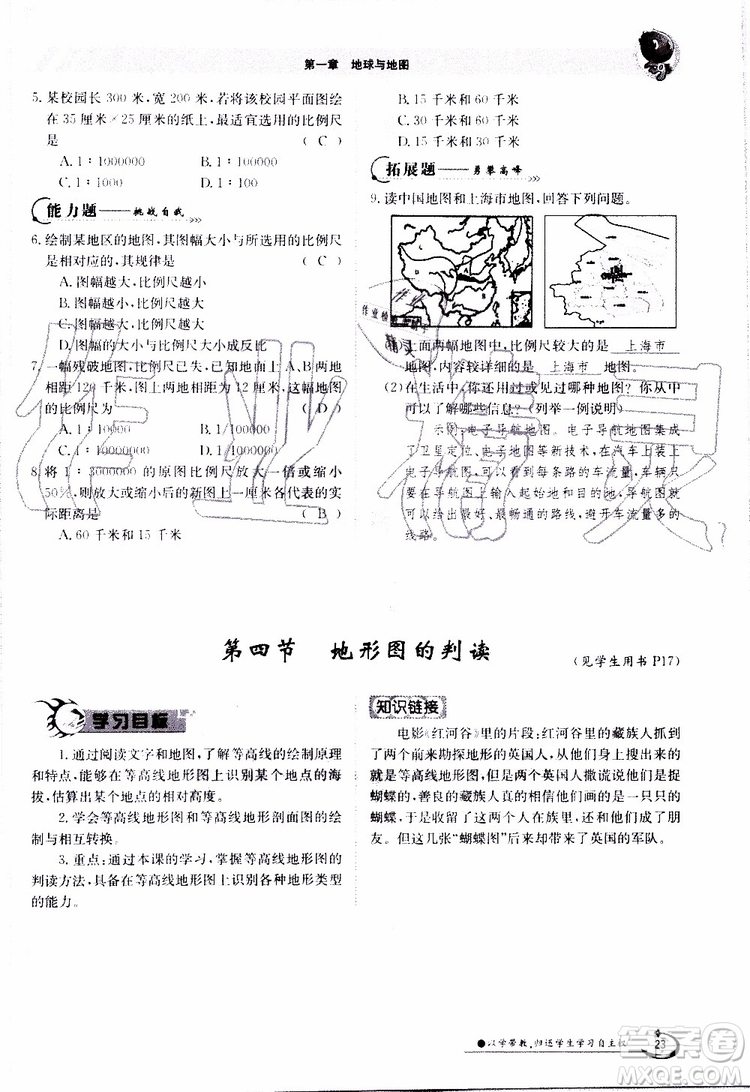 第一章 地球与地图
5. 某校园长 300 米，宽 200 米，若将该校园平面图绘
在 35 厘米×25 厘米的纸上，最适宜选用的比例尺
是 （ C ）
A. 1：1000000 B. 1：100000
C. 1：1000 D. 1：100
能力题——挑战自我
6. 绘制某地区的地图，其图幅大小与所选的比例尺
是相对应的，其规律是 （ ）
A. 图幅越大，比例尺越小
B. 图幅越小，比例尺越大
C. 图幅越大，比例尺越大
D. 图幅大小与比例尺大小成反比
7. 一幅残破地图，比例尺已失，已知地面上 A、B 两地
相距 120 千米，图上两地相距为 12 厘米，则该图的
比例尺为 （ D ）
A. 1：10000 B. 1/100000
C. 1：10000000 D. 1/1000000
8. 将 1：3000000 的原图比例尺放大一倍或缩小
50%，则放大或缩小后的新图上 1 厘米各代表的实
际距离是 （ B ）
A. 60 千米和 15 千米
B. 15 千米和 60 千米
C. 15 千米和 30 千米
D. 30 千米和 60 千米
拓展题——勇攀高峰
9. 读中国地图和上海市地图，回答下列问题。
上面两幅地图中，比例尺较大的是 上海市
地图，内容较详细的是 上海市 地图。
(2) 在生活中，你还用过或见过哪种地图？你从中
可以了解哪些信息？(列举一例说明)
示例：电子导航地图。电子导航地图集成
了卫星定位、电子地图等新技术，在汽车上装上
电子导航图，可以看到每条路的车流量，车辆只
要在导航图上输入起始的地点和目的地，导航图
可以给出最好、最畅通的路线，避开车流量大的
线路。
第四节 地形图的判读
(见学生用书 P17)
学习目标
1. 通过阅读文字和地图，了解等高线的绘制原理
和特点，能够在等高线地形图上识别某个地点的海
拔，估算出某个地点的相对高度。
2. 学会等高线地形图和等高线地形剖面图的绘
制与相互转换。
3. 重点：通过本课的学习，掌握等高线地形图的
判读方法，具备在等高线地形图上识别各种地形类型
的能力。
知识链接
电影《红河谷》里的片段：红河谷里的藏族人抓到
了两个前来勘探地形的英国人，从他们的身上搜出了
几张等高线地形图，两个英国人撒谎说他们是来捉
蝴蝶的，善良的藏族人真的相信他们是一只只美丽的
蝴蝶，于是收留了这两个人在族里，还与他们成了朋
友。日后这几张“蝴蝶图”后来却带来了英国的军队。
以学带教，归还学生学习自主权
23
作业精灵
答案圈
MXQE.COM